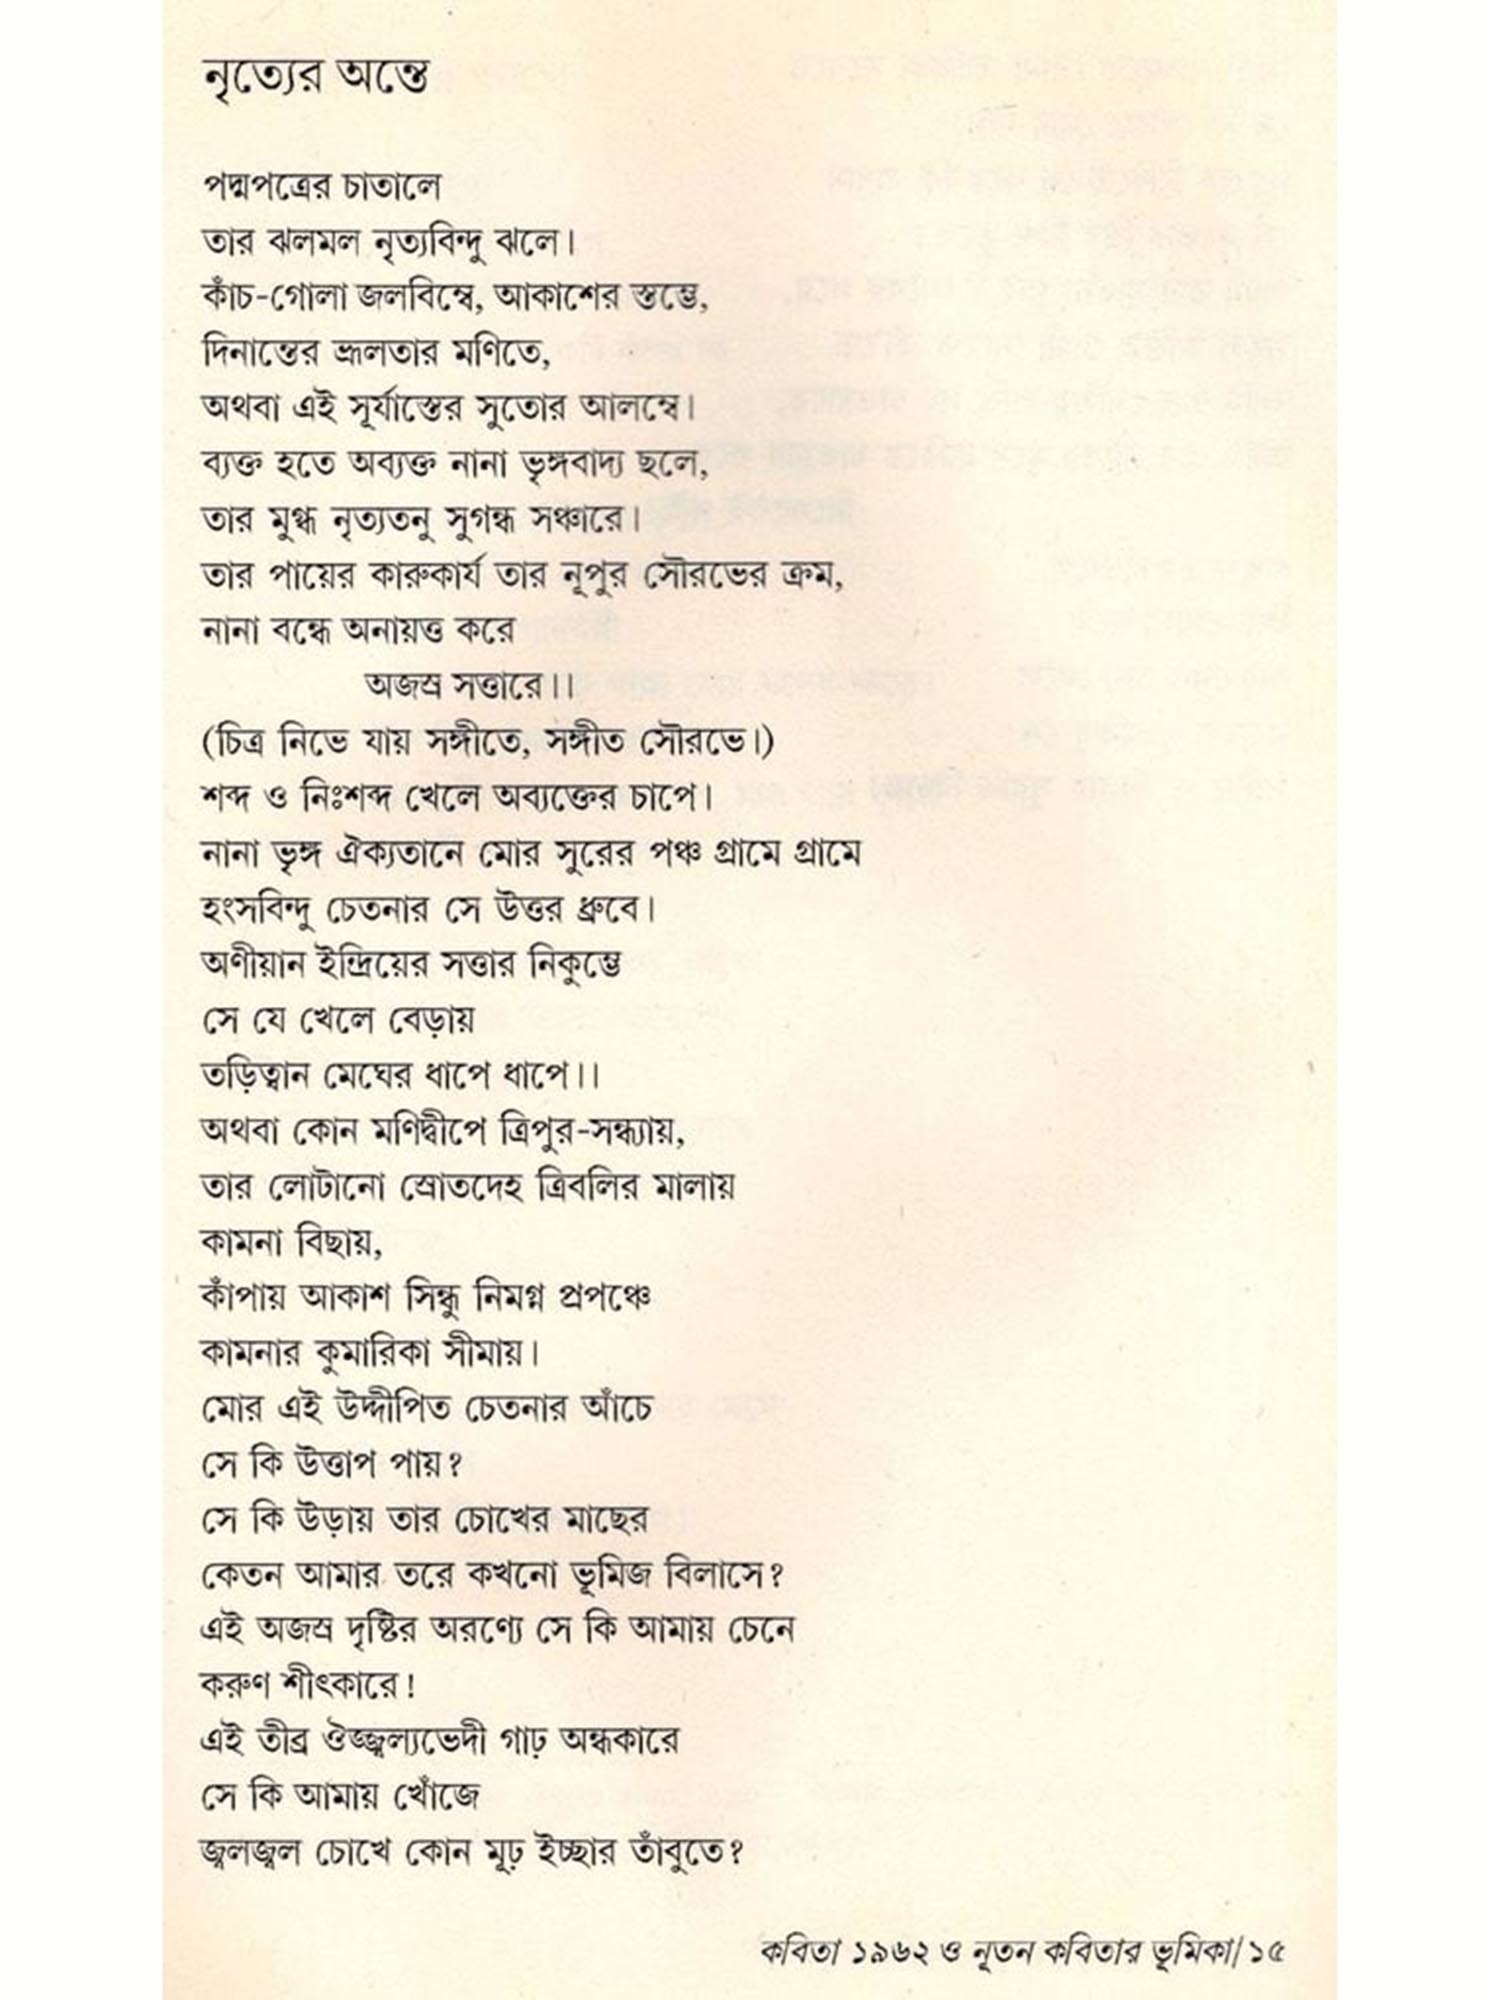 নৃত্যের অন্তে
পদ্মপত্রের চাতালে
তার ঝলমল নৃত্যবিন্দু ঝলে।
কাঁচ-গোলা জলবিম্বে, আকাশের স্তম্ভে,
দিনান্তের ভ্রূলতার মণিতে,
অথবা এই সূর্যাস্তের সুতোর আলম্বে।
ব্যক্ত হতে অব্যক্ত নানা ভৃঙ্গবাদ্য ছলে,
তার মুগ্ধ নৃত্যতনু সুগন্ধ সঞ্চারে।
তার পায়ের কারুকার্য তার নূপুর সৌরভের ক্রম,
নানা বন্ধে অনায়ত্ত করে
অজস্র সত্তারে।।
(চিত্র নিভে যায় সঙ্গীতে, সঙ্গীত সৌরভে।)
শব্দ ও নিঃশব্দ খেলে অব্যক্তের চাপে।
নানা ভৃঙ্গ ঐক্যতানে মোর সুরের পঞ্চ গ্রামে গ্রামে
হংসবিন্দু চেতনার সে উত্তর ধ্রুবে।
অণীয়ান ইন্দ্রিয়ের সত্তার নিকুম্ভে
সে যে খেলে বেড়ায়
তড়িত্বান মেঘের ধাপে ধাপে।।
অথবা কোন মণিদ্বীপে ত্রিপুর-সন্ধ্যায়,
তার লোটানো স্রোতদেহ ত্রিবলির মালায়
কামনা বিছায়,
কাঁপায় আকাশ সিন্ধু নিমগ্ন প্রপঞ্চে
কামনার কুমারিকা সীমায়।
মোর এই উদ্দীপিত চেতনার আঁচে
সে কি উত্তাপ পায়?
সে কি উড়ায় তার চোখের মাছের
কেতন আমার তরে কখনো ভূমিজ বিলাসে?
এই অজস্র দৃষ্টির অরণ্যে সে কি আমায় চেনে
করুণ শীৎকারে!
এই তীব্র ঔজ্জ্বল্যভেদী গাঢ় অন্ধকারে
সে কি আমায় খোঁজে
জ্বলজ্বল চোখে কোন মূঢ় ইচ্ছার তাঁবুতে?
কবিতা ১৯৬২ ও নূতন কবিতার ভূমিকা/১৫